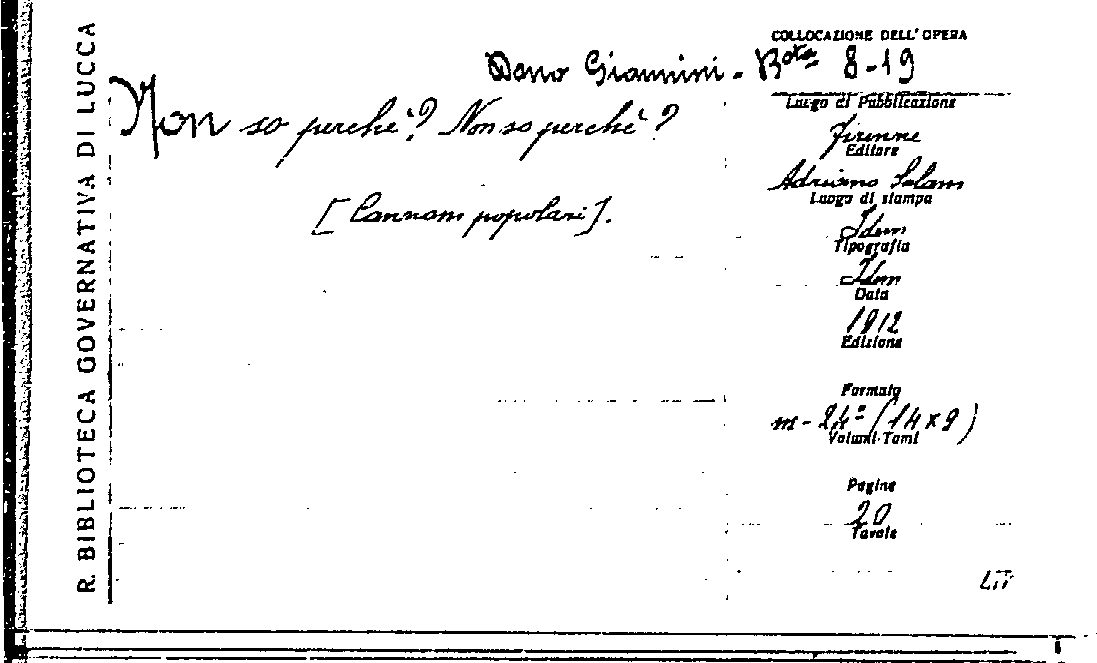 R. BIBLIOTECA GOVERNATIVA DI LUCCA
COLLOCAZIONE DELL' OPERA
Dono Giannini - Bta 8-19
Non so perchè? Non so perchè?
[Canzoni popolari].
Luogo di Pubblicazione
Firenze
Editore
Adriano Salani
Luogo di stampa
Idem
Tipografia
Idem
Data
1912
Edizione
Formato
m-24º (14x9)
Volumi-Tomi
Pagine
20
Tavole